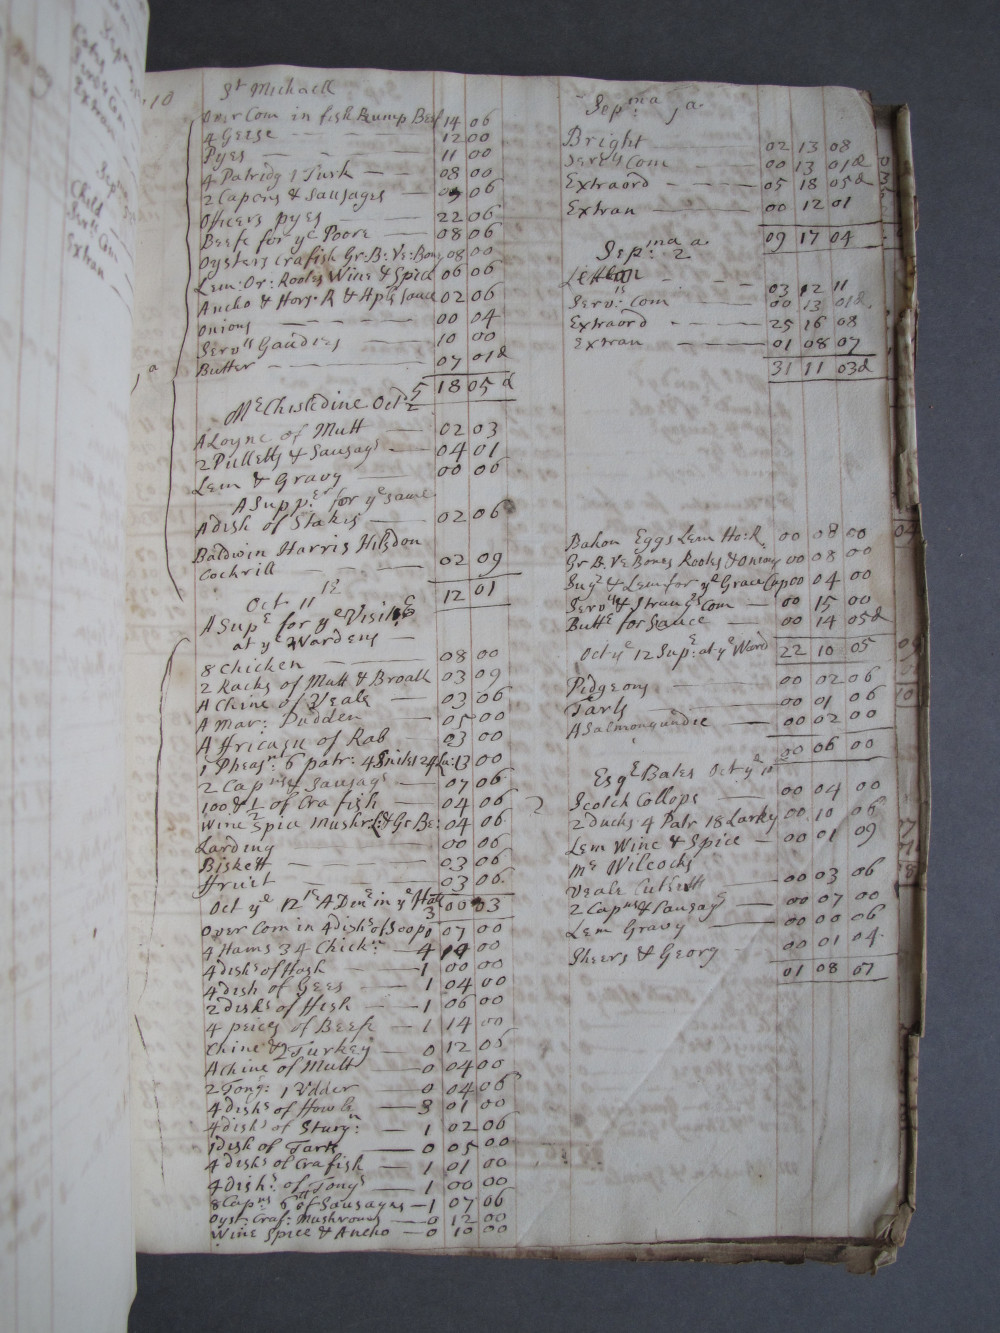 10
St Michaell
Over Com in fish Rump Beef 14 06
4 Geese 12 00
Pyes 11 00
4 Patridg 1 Turk 08 00
2 Capons & Sausages 09 06
Officers pyes 22 06
Beefe for ye Poore 08 06
Oysters Crafish Gr: B: Ve: Bone 08 00
Lem: Or: Rootes Wine & Spice 06 06
Ancho & Hors: R & Aple sauce 02 06
Onions 00 04
Servts Gaudies 10 00
Butter 07 01d
5 18 05 d
Mr Chisledine Octr 2
A Loyne of Mutt 02 03
2 Pulletts & Sausags 04 01
Lem & Gravy 00 06
A Suppr for ye same
A dish of Stakes 02 06
Baldwin Harris Hilsdon
Cochrill 02 09
12 01
Oct 11th
A Supr for ye Visitrs
at ye Wardens
8 Chicken 08 00
2 Racks of Mutt & Broath 03 09
A Chine of Veale 03 06
A Mar: Pudden 05 00
A ffricasy of Rab 03 00
1 Pheasnt 6 patr: 4 Snites 24 La: 13 00
2 Capns & Sausags 07 06
100 & ½ of Crafish 04 06
Wine Spice Mushr: L: & Gr Be: 04 06
Larding 00 06
Biskett 03 06
ffruit 03 06
3 00 03
Oct ye 12th A Dinr in ye Hall
Over Com in 4 dishs of Soop 0 07 00
4 Hams 34 Chickns 4 14 00
4 dishs of Hash 1 00 00
4 dish of Gees 1 04 00
2 dishs of ffish 1 06 00
4 peices of Beefe 1 14 00
Chine & 2 Turkey 0 12 06
A chine of Mutt 0 04 00
2 Tongs: 1 Udder 0 04 06
4 dishs of ffowls 3 01 00
4 dishs of Sturgn: 1 02 06
1 dish of Tarts 0 05 00
4 dishs of Crafish 1 01 00
4 dishs: of Tongs 1 00 00
8 Capns 6 of Sausages 1 07 06
Oyst: Craf: Mushrooms 0 12 00
Wine Spice & Ancho 0 10 00
Sepma ja
Bright 02 13 08
Servts Com 00 13 01d
Extraord 05 18 05d
Extran 00 12 01
09 17 04
Sepma 2a
03 12 11
Servts Com 00 13 01d
Extraord 25 16 08
Extran 01 08 07
31 11 03d
Bakon Eggs Lem Ho: R. 00 08 00
Gr B Ve Bones Rootes & Onions 00 08 00
Sugr & Lem for ye Grace Cap 00 04 00
Servts & Strangs Com 00 15 00
Buttr for Sauce 00 14 05d
22 10 05
Oct ye 12 Supr: at ye Ward
Pidgeons 00 02 06
Tarts 00 01 06
A Salmongundie 00 02 00
00 06 00
Esqr Bates Oct ye 10th
Scotch Collops 00 04 00
2 Ducks 4 Patr 18 Larks 00 10 06
Lem Wine & Spice 00 01 09
Mr Wilcocks
Veale Cutlett 00 03 06
2 Capns & Sausags 00 07 00
Lem Gravy 00 00 06
Sheers & Georg 00 01 04
01 08 07